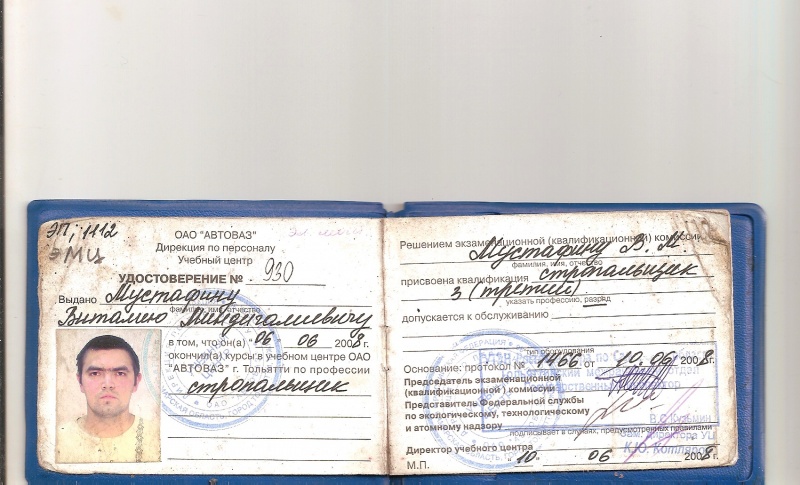 ЭП, 1112
ЭМЦ
ОАО "АВТОВАЗ"
Дирекция по персоналу
Учебный центр
УДОСТОВЕРЕНИЕ № 930
Выдано Мустафину
фамилия, имя, отчество
Виталию Миндигалиевичу
в том, что он(а) "06" 06 2008 г.
окончил(а) курсы в учебном центре ОАО
"АВТОВАЗ" г. Тольятти по профессии
стропальщик
Решением экзаменационной (квалификационной) комиссии
Мустафину В. М.
фамилия, имя, отчество
присвоена квалификация стропальщик
3 (третий)
указать профессию, разряд
допускается к обслуживанию
тип оборудования
Основание: протокол № 1466 от 10.06 2008 г.
Председатель экзаменационной
(квалификационной) комиссии
Представитель Федеральной службы
по экологическому, технологическому
и атомному надзору
В.С.Кузьмин
подписывает в случаях, предусмотренных правилами
Зам. директора УЦ
Директор учебного центра
К.Ю. Котляров
М.П. "10" 06 2008 г.